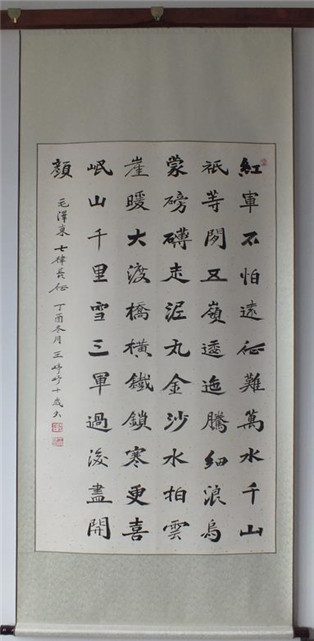 紅軍不怕遠征難萬水千山
祇等閑五嶺逶迤騰細浪烏
蒙磅礡走泥丸金沙水拍雲
崖暖大渡橋橫鐵鎖寒更喜
岷山千里雪三軍過後盡開
顏
毛澤東七律長征 丁酉冬月 王婷婷十歲書